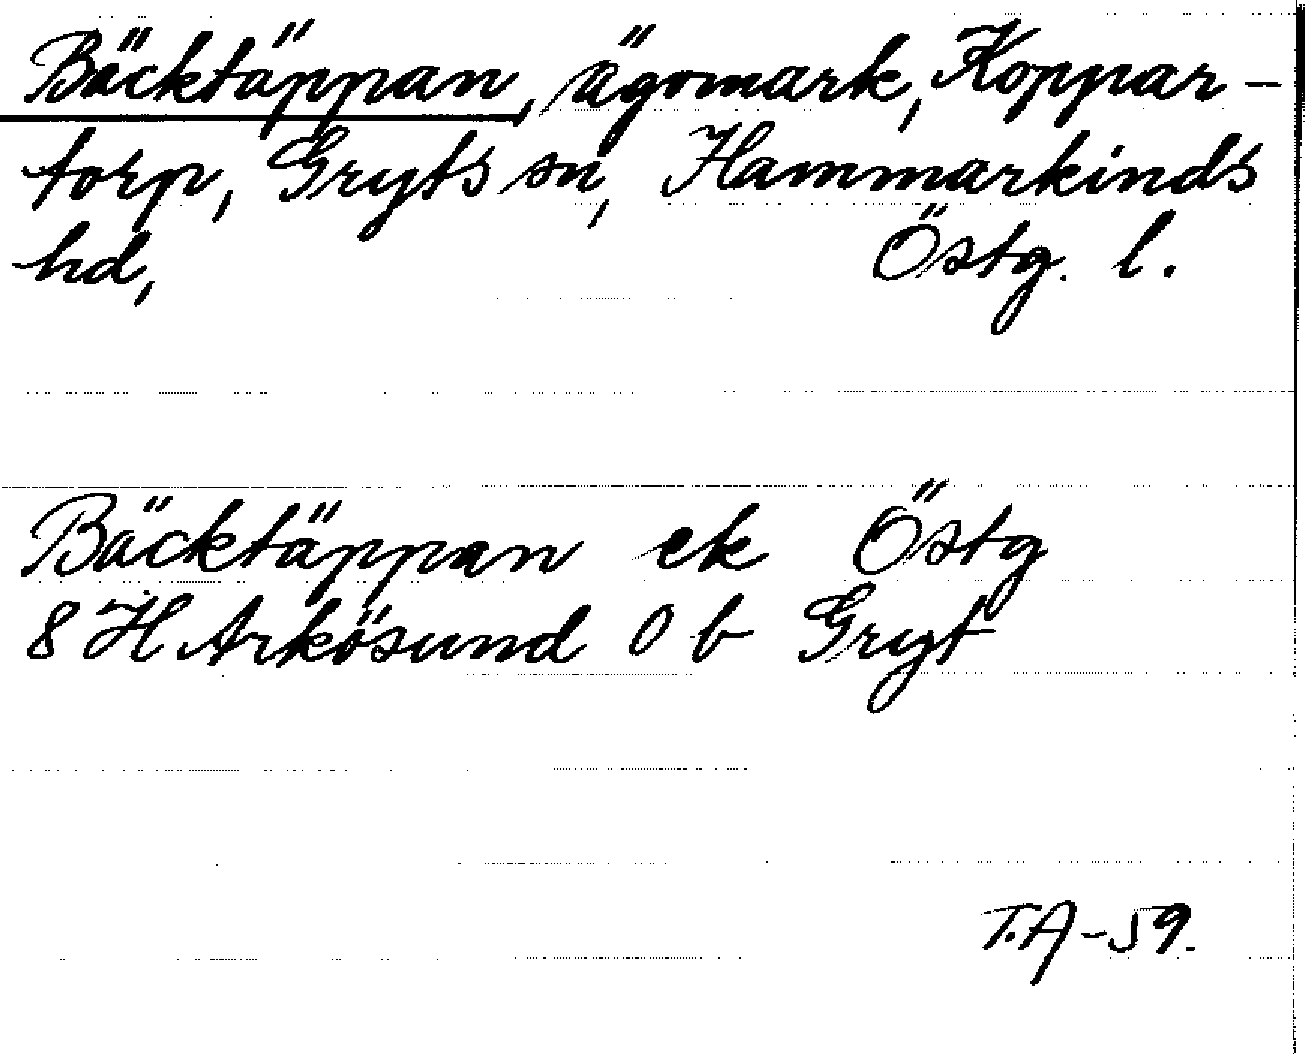 Bäcktäppan, ägomark, Koppar-
torp, Gryts sn, Hammarkinds
hd, Östg. l.
Bäcktäppan ek Östg
8 H Arkösund 0 b Gryt
T.A-59.